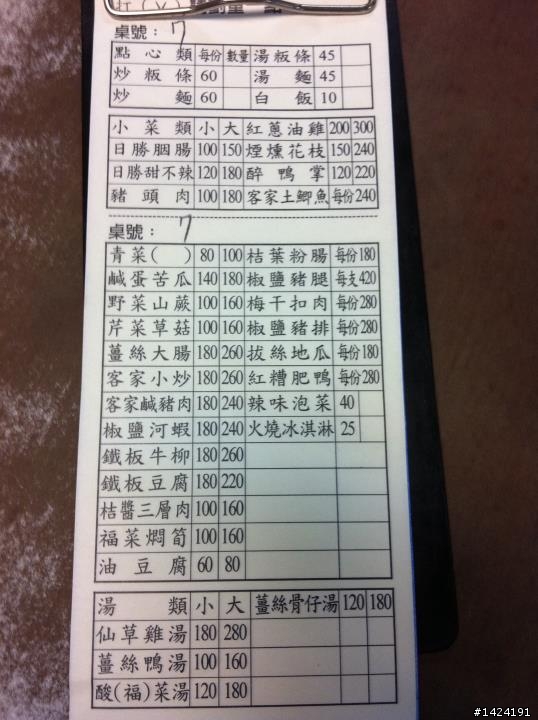 桌號: 7
點心類 每份 數量 湯粄條 45
炒粄條 60 湯麵 45
炒麵 60 白飯 10
小菜類 小 大 紅蔥油雞 200 300
日勝胭腸 100 150 煙燻花枝 150 240
日勝甜不辣 120 180 醉鴨掌 120 220
豬頭肉 100 180 客家土鯽魚 每份240
桌號: 7
青菜( ) 80 100 桔葉粉腸 每份180
鹹蛋苦瓜 140 180 椒鹽豬腿 每支420
野菜山蕨 100 160 梅干扣肉 每份280
芹菜草菇 100 160 椒鹽豬排 每份280
薑絲大腸 180 260 拔絲地瓜 每份180
客家小炒 180 260 紅糟肥鴨 每份280
客家鹹豬肉 180 240 辣味泡菜 40
椒鹽河蝦 180 240 火燒冰淇淋 25
鐵板牛柳 180 260
鐵板豆腐 180 220
桔醬三層肉 100 160
福菜燜筍 100 160
油豆腐 60 80
湯類 小 大 薑絲骨仔湯 120 180
仙草雞湯 180 280
薑絲鴨湯 100 160
酸(福)菜湯 120 180
#1424191